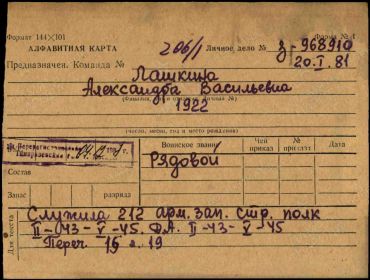 Формат 144×101 Форма № 1
АЛФАВИТНАЯ КАРТА 206/1 Личное дело № З-968910
Предназначен. Команда № 20.I.81
Лашкина
Александра Васильевна
(Фамилия, имя и отчество)
1922
(число, месяц, год и место рождения)
Перерегистрирован
Тимирязевский
Воинское звание Чей приказ № приказа Дата
Рядовой
Состав
Запас разряда
Для текста
Служила 212 арм. зап. стр. полк
II-43-V-45. Д.А. II-43-V-45
Переч 15 л. 19